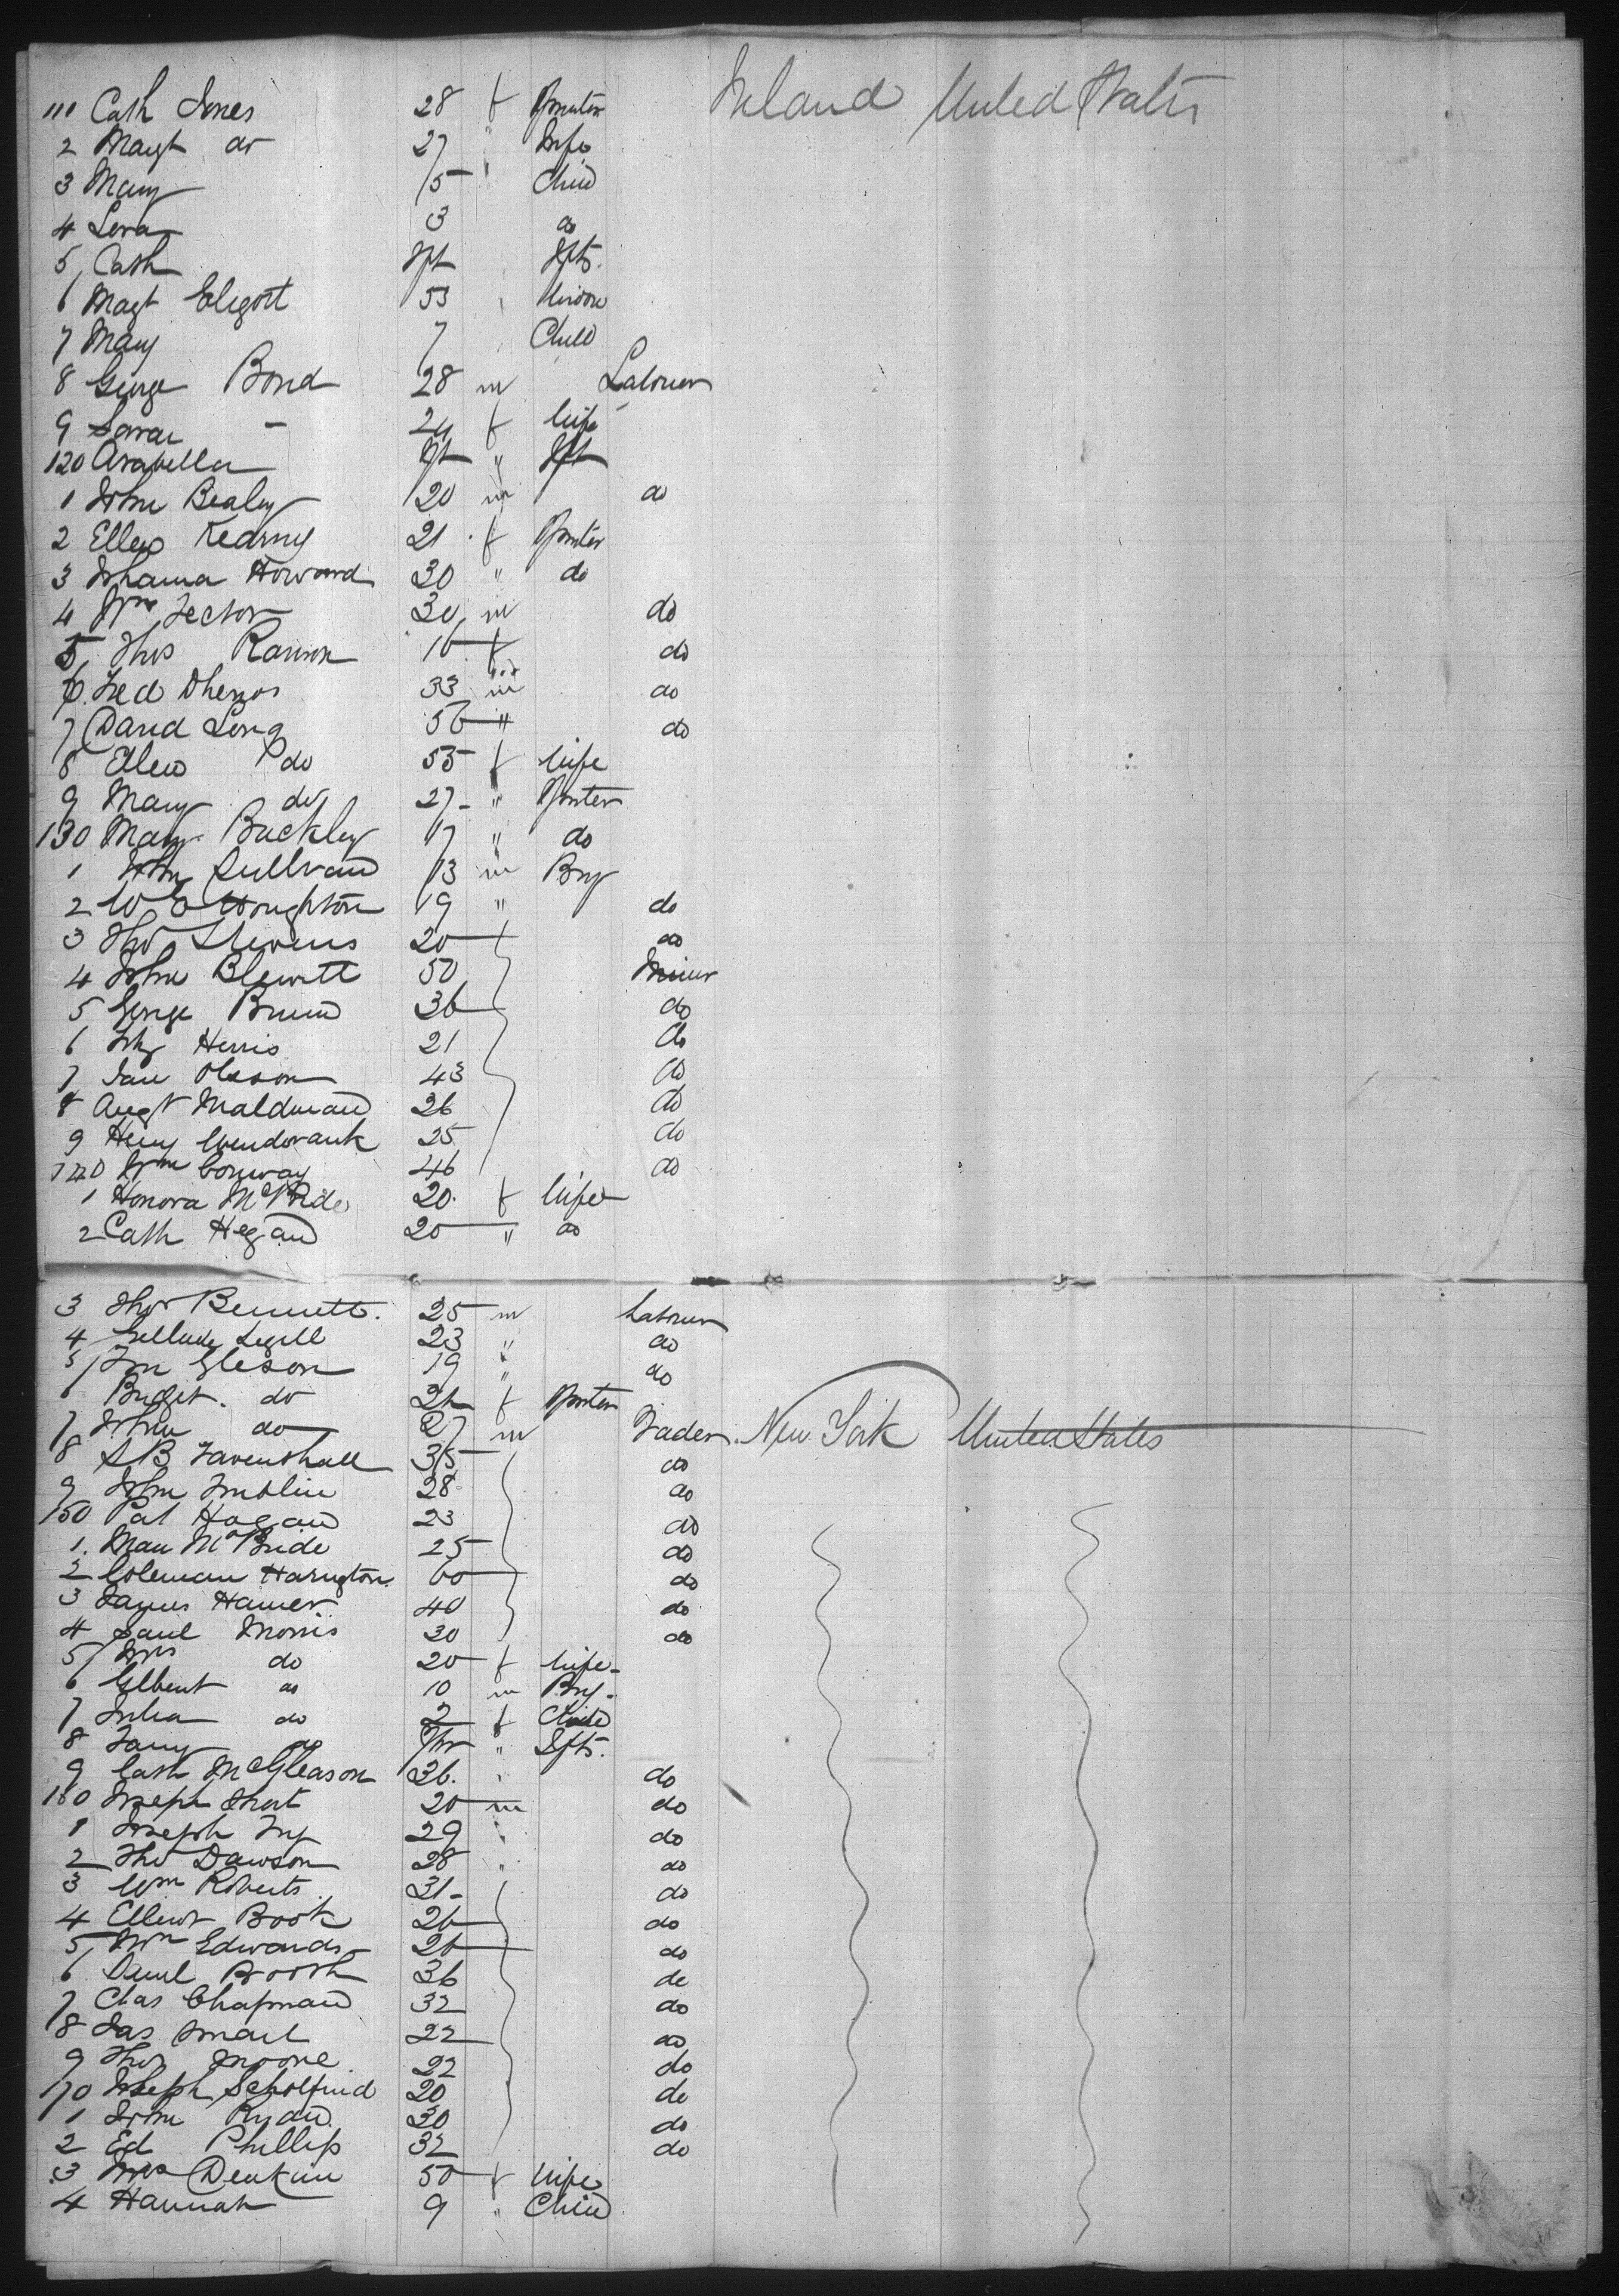 111 Cath Jones 28 f Spinster Ireland United States
2 Margt do 27 " Wife
3 Mary 5 " Child
4 Lora 3 do
5 Cath Ift Ifts.
6 Magt 53 Widow
7 Mary 7 Child
8 George Bond 28 m Labourer
9 Sarae - 24 f Wife
120 Arabella Ift " Ift
1 John Bealey 20 m do
2 Ellen Kearny 21 f Spinster
3 Johanna Howard 30 " do
4 Wm Hector 30 m do
5 Thos 16 f do
6 Fred 33 m do
7 David Long 56 " do
8 Ellen do 55 f Wife
9 Mary do 27 " Spinster
130 Mary Buckley 17 " do
1 John Sullivan 13 m Boy
2 W Houghton 19 " do
3 Thos Stevens 20 do
4 John Blewitt 50 Miner
5 George 36 do
6 Herris 21 do
7 Olsson 43 do
8 Augt 26 do
9 Henry 25 do
140 Wm Conway 46 do
1 Honora McBride 20 f Wife
2 Cath Hegan 20 " do
3 Thos Bennett. 25 m Labourer
4 23 " do
5 Jno Gleson 19 " do
6 Bridget. do 26 f Spinster
7 John do 27 m Trader. New York United States
8 S B 35 do
9 John 28 do
150 Pat Hogan 23 do
1. McBride 25 do
2 Coleman Harngton 60 do
3 James Hamer 40 do
4 Saul Morris 30 do
5 Mrs do 20 f Wife
6 Gilbert do 10 m Boy.
7 Julia do 2 f Child
8 Fany do " Ifts.
9 Cath McGleason 36. " do
160 Joseph Short 20 m do
1 Joseph 29 " do
2 Tho Dawson 28 " do
3 Wm Roberts 31 do
4 Book 26 do
5 Wm Edwards 26 do
6 Danl Booth 36 do
7 Chas Chapman 32 do
8 Jas Smart 22 do
9 Thos Moore 22 do
170 Joseph Scholfield 20 do
1 John Ryan 30 do
2 Ed Phillips 32 do
3 Mrs Deakin 50 f Wife
4 Hannah 9 " Child